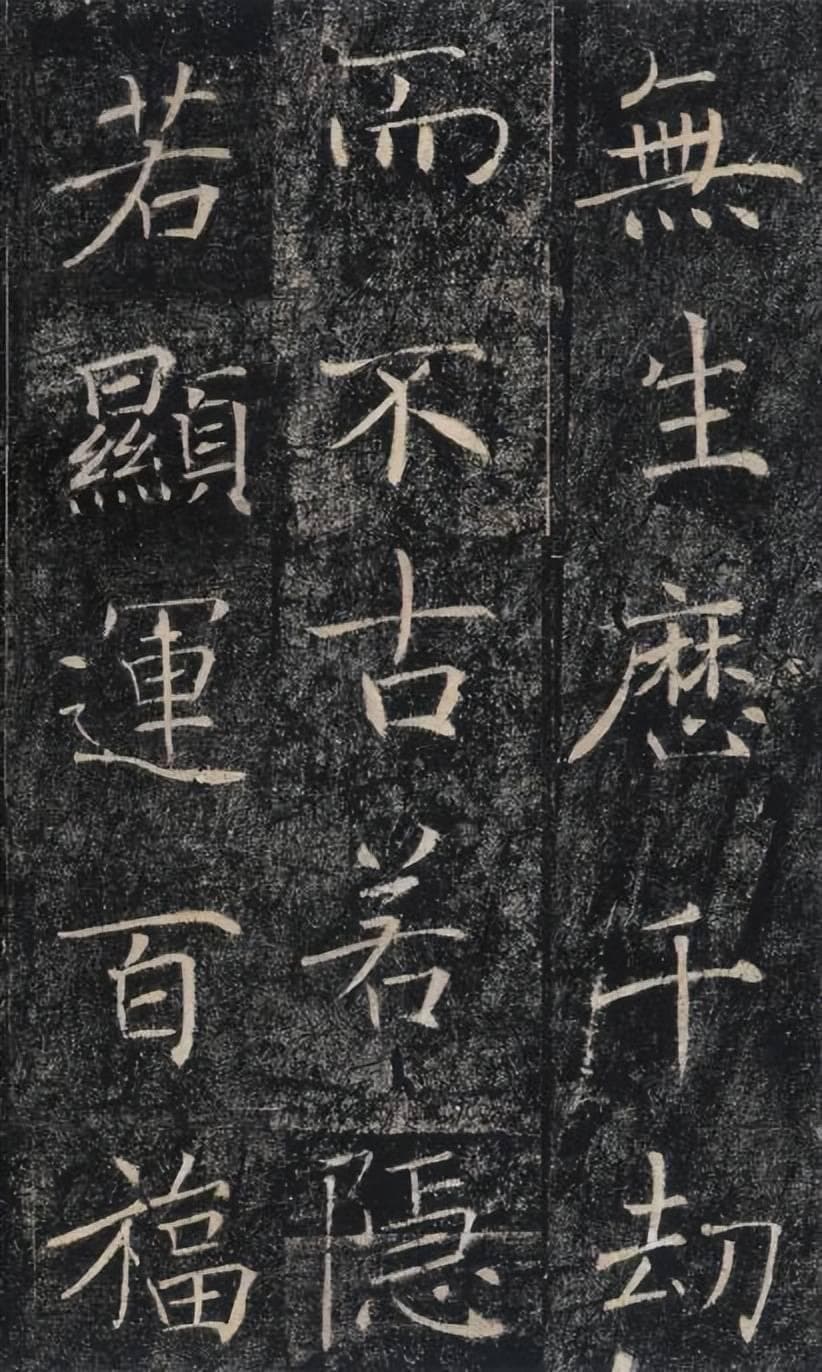 無生歷千劫
而不古若隱
若顯運百福